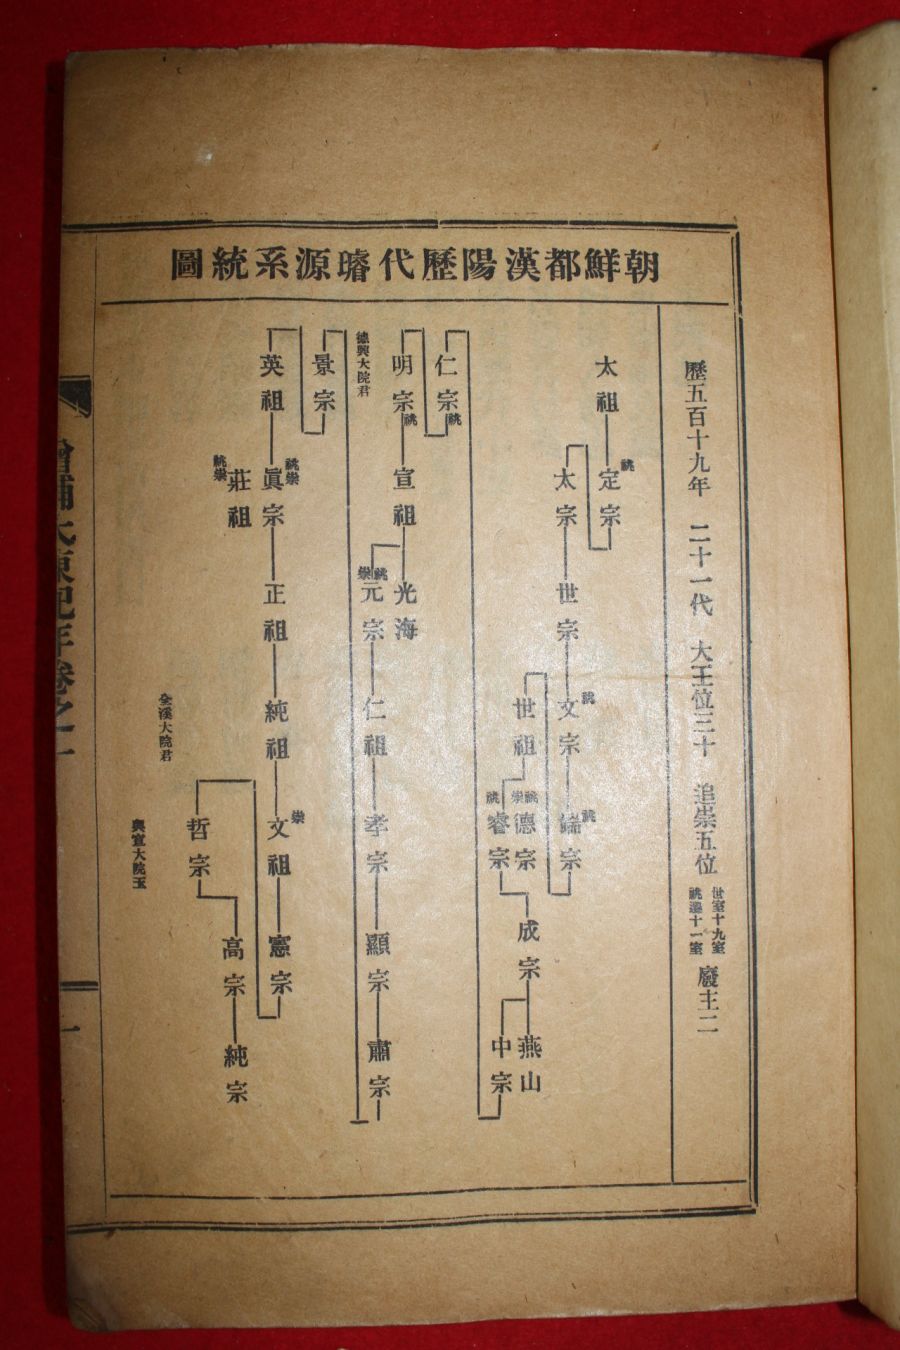 朝鮮都漢陽歷代璿源系統圖
歷五百十九年 二十一代 大王位三十 追崇五位 世室十九室 祧遷十一室 廢主二
太祖
定宗 祧
太宗
世宗
文宗 祧
端宗 祧
世祖
德宗 祧崇
睿宗 祧
成宗
燕山
中宗
仁宗 祧
明宗 祧
宣祖
光海
元宗 祧崇
仁祖
孝宗
顯宗
肅宗
德興大院君
景宗
英祖
眞宗 祧崇
莊祖 祧崇
正祖
純祖
文祖 崇
憲宗
哲宗
高宗
純宗
全溪大院君
興宣大院王
增補大東紀年卷之一
一